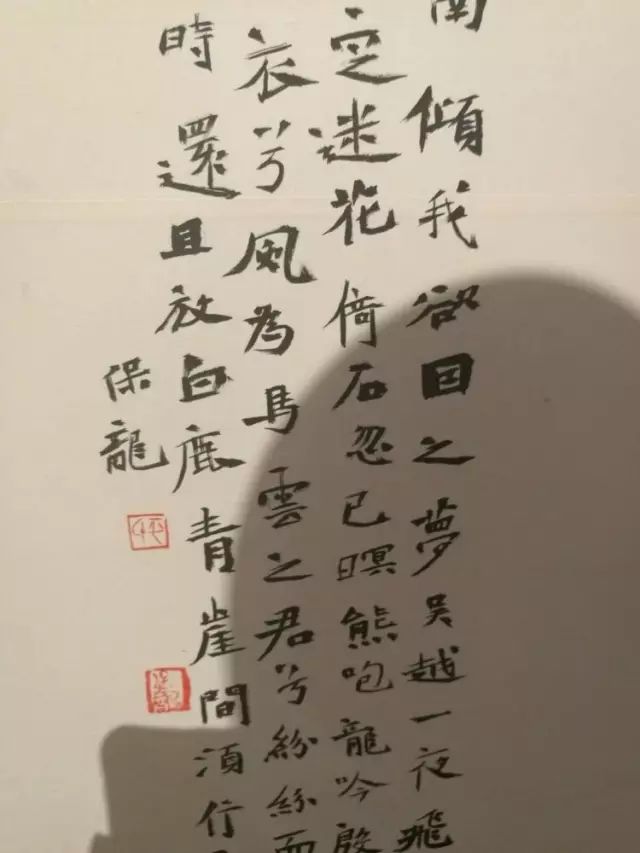 南傾我欲因之夢吳越一夜飛
定迷花倚石忽已暝熊咆龍吟殷
衣兮風為馬雲之君兮紛紛而
時還且放白鹿青崖間須行
保龍